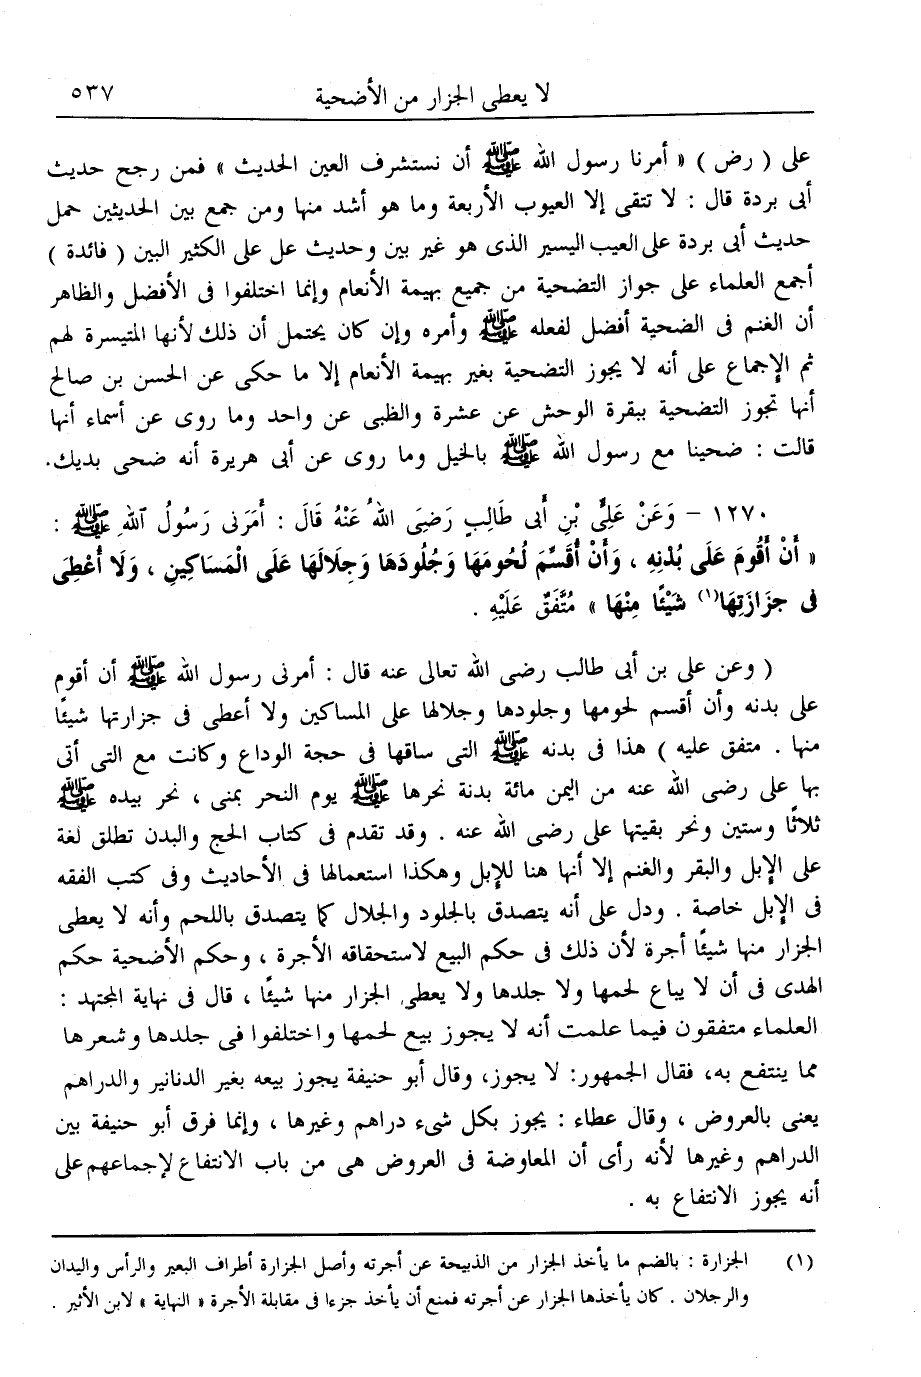 لا يعطى الجزار من الأضحية ٥٣٧
على ( رض ) « أمرنا رسول الله ﷺ أن نستشرف العين الحديث » فمن رجح حديث
أبى بردة قال : لا تتقى إلا العيوب الأربعة وما هو أشد منها ومن جمع بين الحديثين حمل
حديث أبى بردة على العيب اليسير الذى هو غير بين وحديث على على الكثير البين ( فائدة )
أجمع العلماء على جواز التضحية من جميع بهيمة الأنعام وإنما اختلفوا فى الأفضل والظاهر
أن الغنم فى الضحية أفضل لفعله ﷺ وأمره وإن كان يحتمل أن ذلك لأنها المتيسرة لهم
ثم الإجماع على أنه لا يجوز التضحية بغير بهيمة الأنعام إلا ما حكى عن الحسن بن صالح
أنها تجوز التضحية ببقرة الوحش عن عشرة والظبى عن واحد وما روى عن أسماء أنها
قالت : ضحينا مع رسول الله ﷺ بالخيل وما روى عن أبى هريرة أنه ضحى بديك.
١٢٧٠ – وَعَنْ عَلِيِّ بْنِ أَبى طَالِبٍ رَضِىَ اللهُ عَنْهُ قَالَ : أَمَرَنى رَسُولُ اللهِ ﷺ :
« أَنْ أَقُومَ عَلَى بُدْنِهِ ، وَأَنْ أُقَسِّمَ لُحُومَهَا وَجُلُودَهَا وَجِلَالَهَا عَلَى الْمَسَاكِينِ ، وَلَا أُعْطِىَ
فى جِزَارَتِهَا(١) شَيْئًا مِنْهَا » مُتَّفَقٌ عَلَيْهِ .
( وعن على بن أبى طالب رضى الله تعالى عنه قال : أمرنى رسول الله ﷺ أن أقوم
على بدنه وأن أقسم لحومها وجلودها وجلالها على المساكين ولا أعطى فى جزارتها شيئًا
منها . متفق عليه ) هذا فى بدنه ﷺ التى ساقها فى حجة الوداع وكانت مع التى أتى
بها على رضى الله عنه من اليمن مائة بدنة نحرها ﷺ يوم النحر بمنى ، نحر بيده ﷺ
ثلاثًا وستين ونحر بقيتها على رضى الله عنه . وقد تقدم فى كتاب الحج والبدن تطلق لغة
على الإبل والبقر والغنم إلا أنها هنا للإبل وهكذا استعمالها فى الأحاديث وفى كتب الفقه
فى الإبل خاصة . ودل على أنه يتصدق بالجلود والجلال كما يتصدق باللحم وأنه لا يعطى
الجزار منها شيئًا أجرة لأن ذلك فى حكم البيع لاستحقاقه الأجرة ، وحكم الأضحية حكم
الهدى فى أن لا يباع لحمها ولا جلدها ولا يعطى الجزار منها شيئًا ، قال فى نهاية المجتهد :
العلماء متفقون فيما علمت أنه لا يجوز بيع لحمها واختلفوا فى جلدها وشعرها
مما ينتفع به، فقال الجمهور: لا يجوز، وقال أبو حنيفة يجوز بيعه بغير الدنانير والدراهم
يعنى بالعروض ، وقال عطاء : يجوز بكل شىء دراهم وغيرها ، وإنما فرق أبو حنيفة بين
الدراهم وغيرها لأنه رأى أن المعاوضة فى العروض هى من باب الانتفاع لإجماعهم على
أنه يجوز الانتفاع به .
(١) الجزارة : بالضم ما يأخذ الجزار من الذبيحة عن أجرته وأصل الجزارة أطراف البعير والرأس واليدان
والرجلان . كان يأخذها الجزار عن أجرته فمنع أن يأخذ جزءا فى مقابلة الأجرة « النهاية » لابن الأثير .